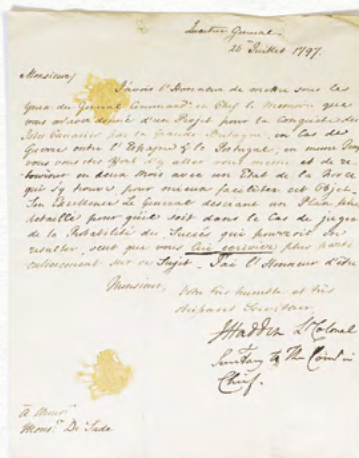 Quartier General
26 Juillet 1797.
Monsieur
J'avois l'Honneur de mettre sous les
yeux du General Commandt en Chef le Memoire que
vous m'avez donné d'un Projet pour la Conquête des
Isles Canaries par la Grande Bretagne, en Cas de
Guerre entre l'Espagne & le Portugal, en meme
vous vous d'y aller vous meme et de re-
en deux mois avec un Etat de la Force
qui s'y trouve, pour mieux faciliter cet Objet.
Son Excellence Le General desirant un Plan plus
detaillé pour qu'il soit dans le Cas de juger
de la Probabilité du Succés qui pourroit en
resulter, veut que vous lui ecriviez plus parti-
culierement sur ce Sujet. J'ai l'Honneur d'etre
Monsieur, Votre très humble et très
Serviteur
JHadden Lt Colonel
Secretary to The Comr in
Chief.
à Monsr
Monsr De Sade